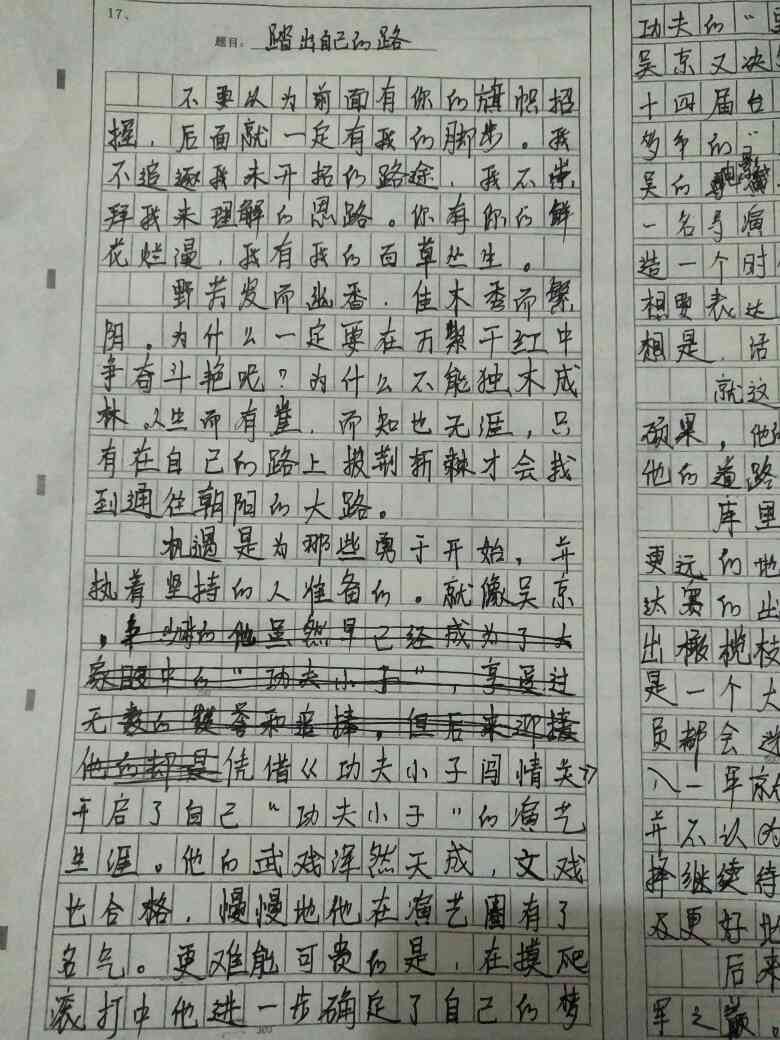 17、
题目: 踏出自己的路
不要以为前面有你的旗帜招
摇，后面就一定有我的脚步。我
不追逐我未开拓的路途，我不崇
拜我未理解的思路。你有你的鲜
花烂漫，我有我的百草丛生。
野芳发而幽香，佳木秀而繁
阴。为什么一定要在万紫千红中
争奇斗艳呢？为什么不能独木成
林。人生而有崖，而知也无涯，只
有在自己的路上披荆斩棘才会找
到通往朝阳的大路。
机遇是为那些勇于开始，并
执着坚持的人准备的。就像吴京
，他虽然早已经成为了大
家眼中的“功夫小子”，享受过
无数的赞誉和追捧，但后来迎接
他的却是凭借《功夫小子闯情关》
开启了自己“功夫小子”的演艺
生涯。他的武戏浑然天成，文戏
也合格，慢慢地他在演艺圈有了
名气。更难能可贵的是，在摸爬
滚打中他进一步确定了自己的梦
300
功夫的“
吴京又决
十四届台
梦乡的
吴的
一名导演
造一个时
想要表达
想是，活
就这
硕果，他
他的道路
库里
更远的地
达赛的出
出橄榄枝
是一个大
员都会选
八一年
并不认为
择继续待
及更好
后来
军之巅。